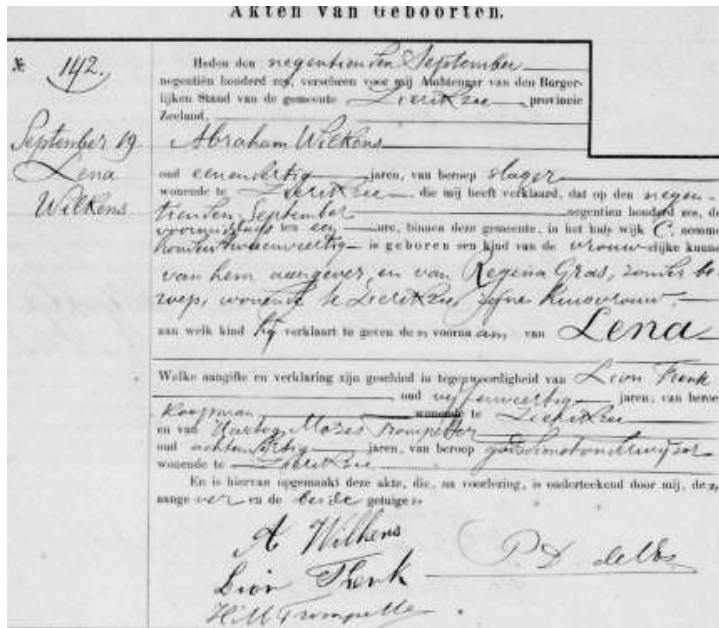 Akten van Geboorten.
№ 142.
September 19
Lena
Wilkens
Heden den negentienden September
negentien honderd zes, verscheen voor mij Ambtenaar van den Burger-
lijken Stand van de gemeente Zierikzee provincie
Zeeland,
Abraham Wilkens
oud eenendertig jaren, van beroep slager
wonende te Zierikzee, die mij heeft verklaard, dat op den negen-
tienden September negentien honderd zes, d
voormiddags ten een ure, binnen deze gemeente, in het huis wijk C. nomme
honderd tweeenveertig is geboren een kind van de vrouwelijke kunne
van hem aangever, en van Regina Gras, zonder be-
roep, wonende te Zierikzee, zijne huisvrouw.
aan welk kind hij verklaart te geven de n voornaam van Lena
Welke aangifte en verklaring zijn geschied in tegenwoordigheid van Lion Flenk
oud vijfenveertig jaren, van beroe
koopman wonende te Zierikzee
en van Hartog Mozes Trompetter
oud achtenveertig jaren, van beroep godsdienstonderwijzer
wonende te Zierikzee
En is hiervan opgemaakt deze akte, die, na voorlezing, is onderteekend door mij, de n
aangever en de beide getuigen
A Wilkens
Lion Flenk
P.D. de Vos
H.M. Trompetter